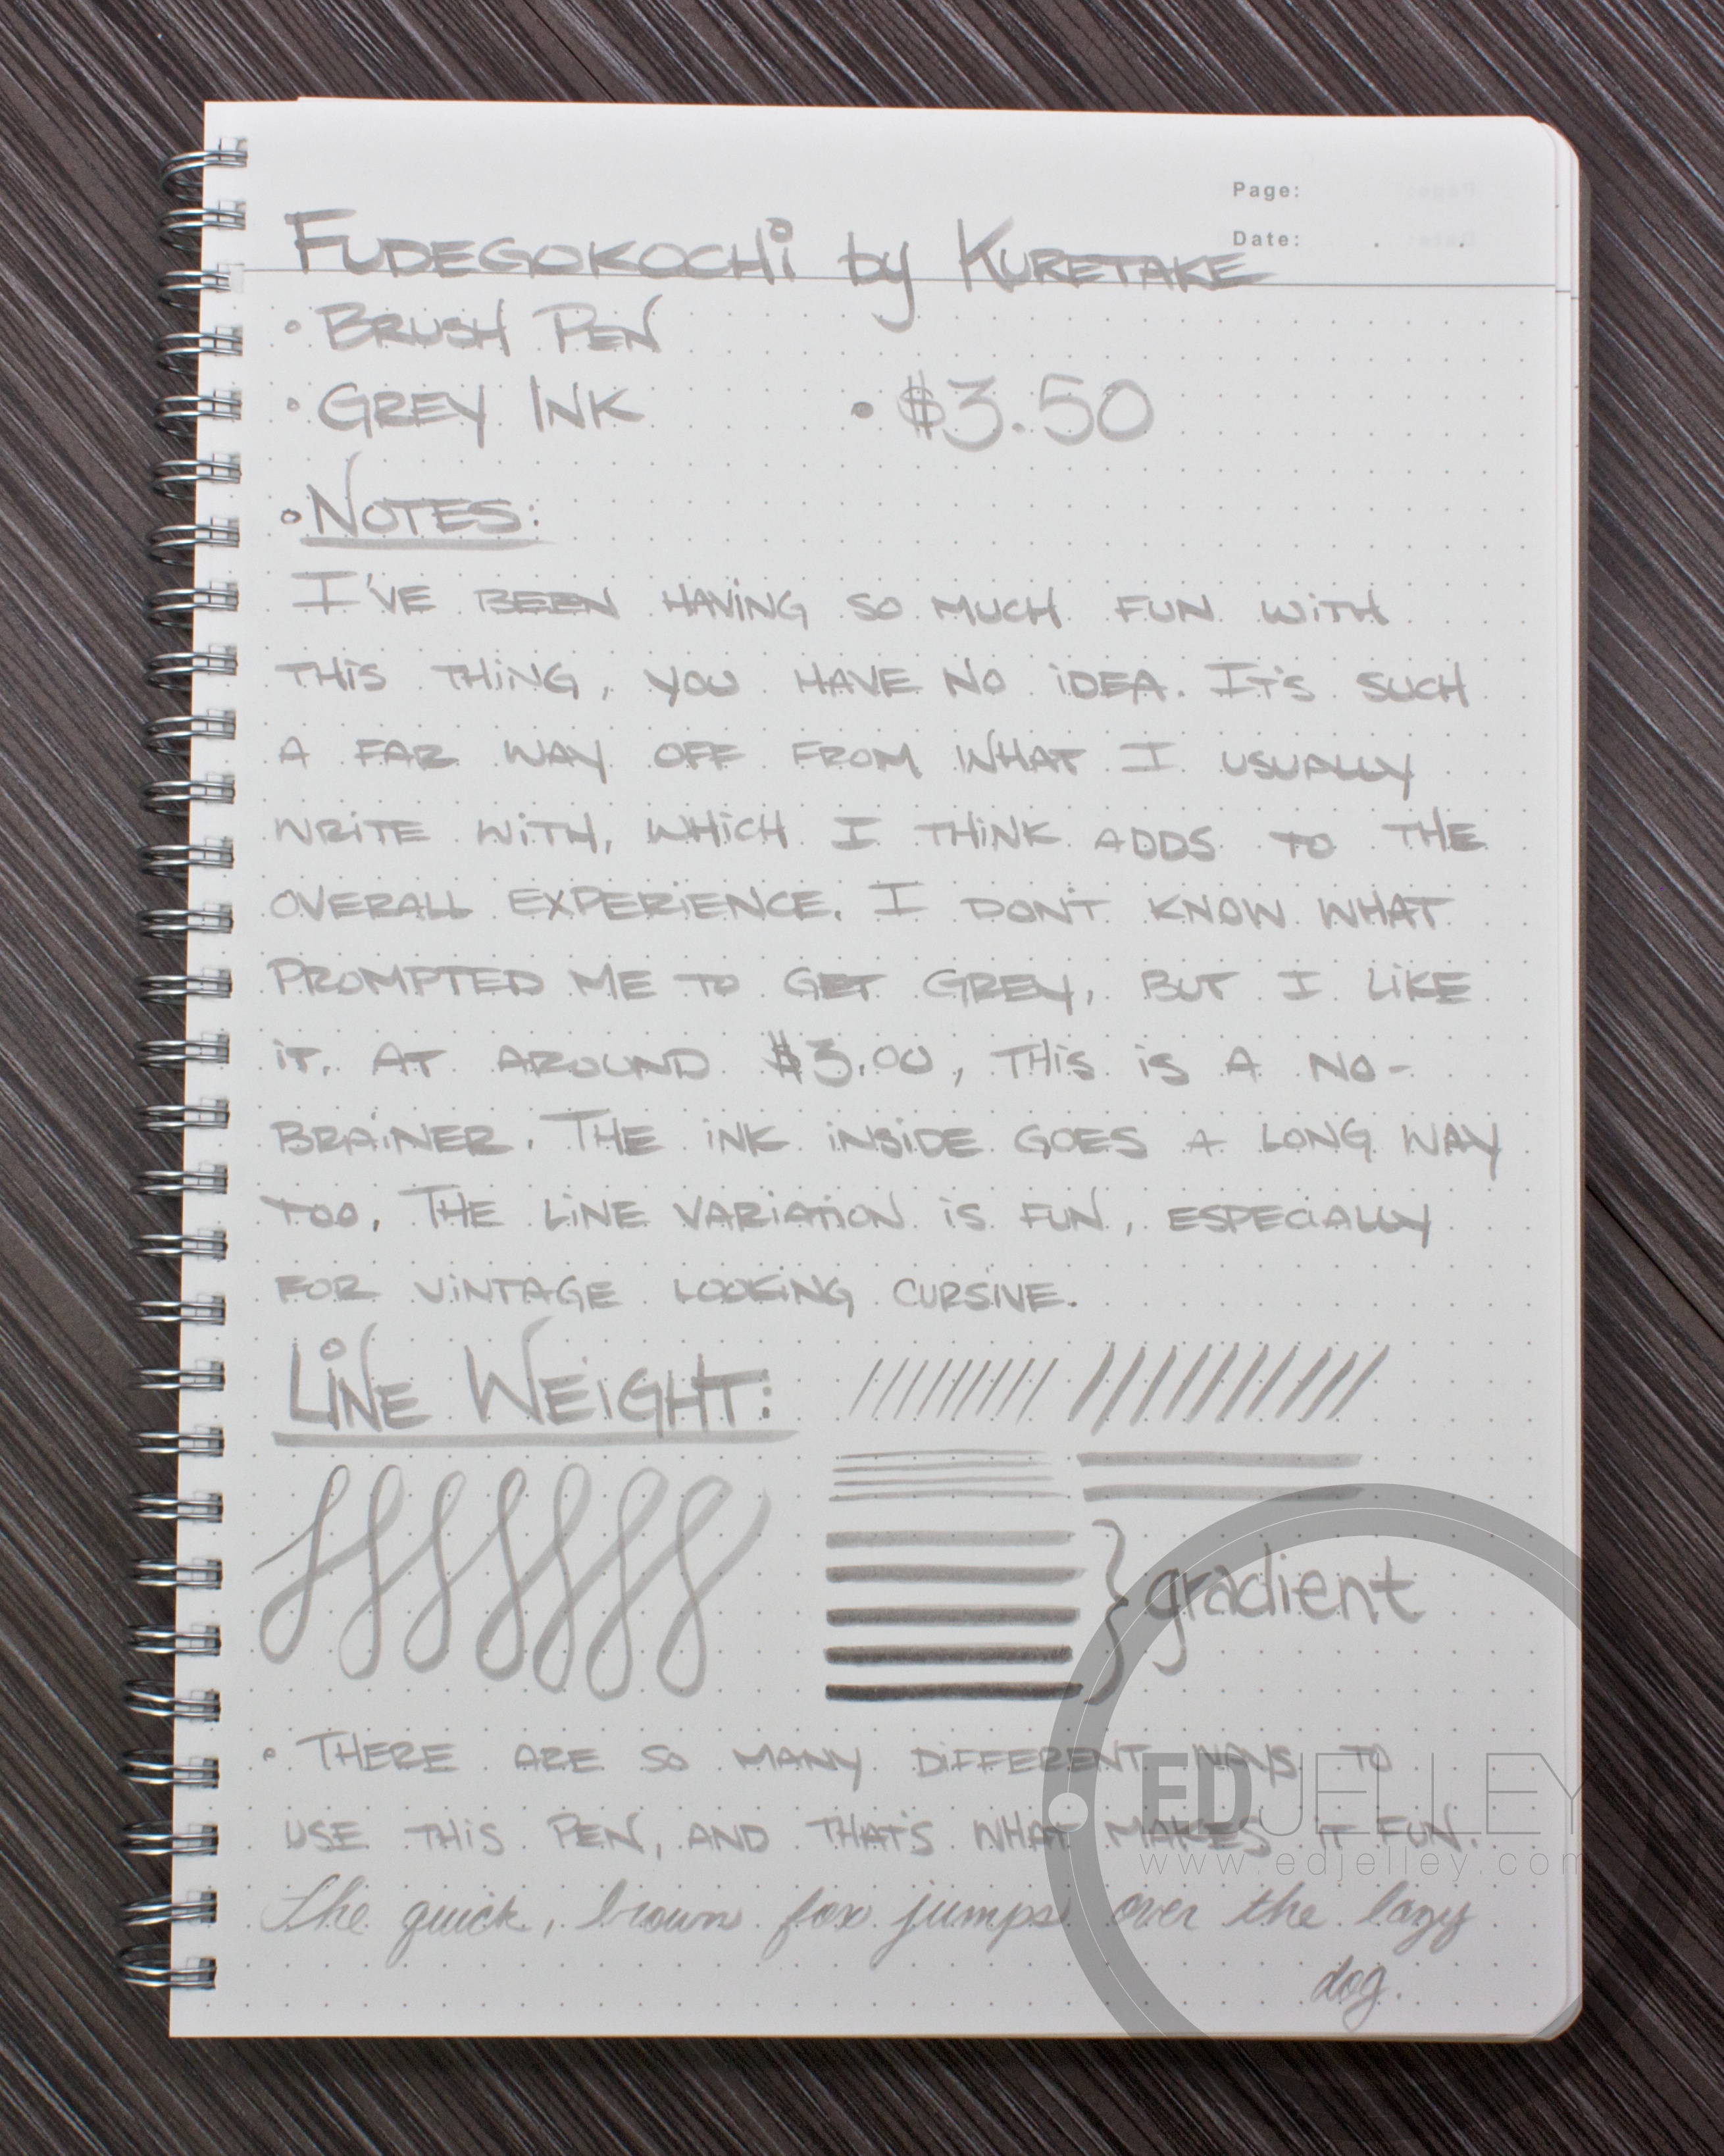 Page:
Date: . .
FUDEGOKOCHi by KURETAKE
• BRUSH PEN
• GREY INK • $3.50
• NOTES:
I'VE BEEN HAViNG SO MUCH FUN WiTH
THiS THiNG, YOU HAVE NO iDEA. IT'S SUCH
A FAR WAY OFF FROM WHAT I USUALLY
WRiTE WiTH, WHiCH I THiNK ADDS TO THE
OVERALL EXPERiENCE. I DON'T KNOW WHAT
PROMPTED ME TO GET GREY, BUT I LiKE
iT. AT AROUND $3.00, THiS iS A NO-
BRAiNER. THE iNK iNSiDE GOES A LONG WAY
TOO. THE LiNE VARiATiON iS FUN, ESPECiALLY
FOR ViNTAGE LOOKiNG CURSiVE.
LiNE WEiGHT:
} gradient
• THERE ARE SO MANY DiFFERENT WAYS TO
USE THiS PEN, AND THAT'S WHAT MAKES iT FUN.
The quick, brown fox jumps over the lazy
dog.
EDJELLEY
www.edjelley.com